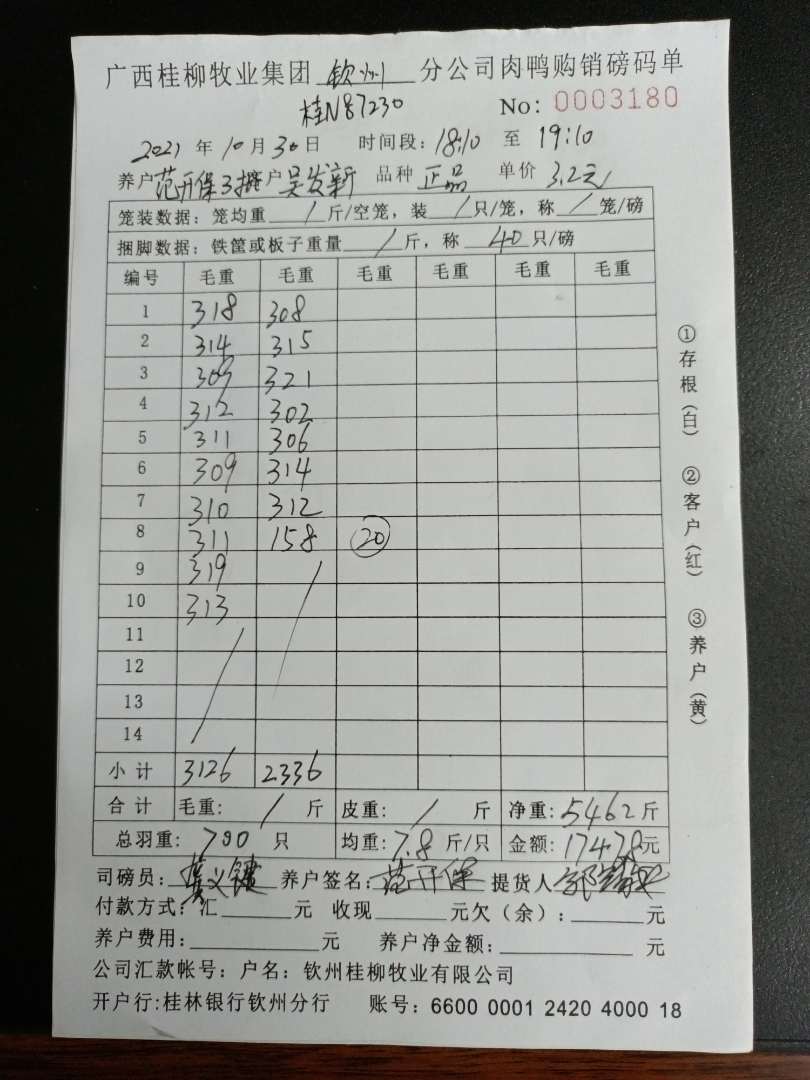 广西桂柳牧业集团 钦州 分公司肉鸭购销磅码单
桂N87230 No: 0003180
2021 年 10 月 30 日 时间段: 18:10 至 19:10
养户 范开保3 户 吴发新 品种 正品 单价 3.2元
笼装数据: 笼均重 / 斤/空笼, 装 / 只/笼, 称 / 笼/磅
捆脚数据: 铁筐或板子重量 / 斤, 称 40 只/磅
编号 毛重 毛重 毛重 毛重 毛重 毛重
1 318 308
2 314 315
3 309 321
4 312 302
5 311 306
6 309 314
7 310 312
8 311 158 20
9 319
10 313
11
12
13
14
小计 3126 2336
合计 毛重: / 斤 皮重: / 斤 净重: 5462 斤
总羽重: 700 只 均重: 7.8 斤/只 金额: 17478 元
司磅员: 养户签名: 范开保 提货人
付款方式: 汇 元 收现 元欠(余): 元
养户费用: 元 养户净金额: 元
公司汇款帐号: 户名: 钦州桂柳牧业有限公司
开户行:桂林银行钦州分行 账号: 6600 0001 2420 4000 18
①存根(白) ②客户(红) ③养户(黄)